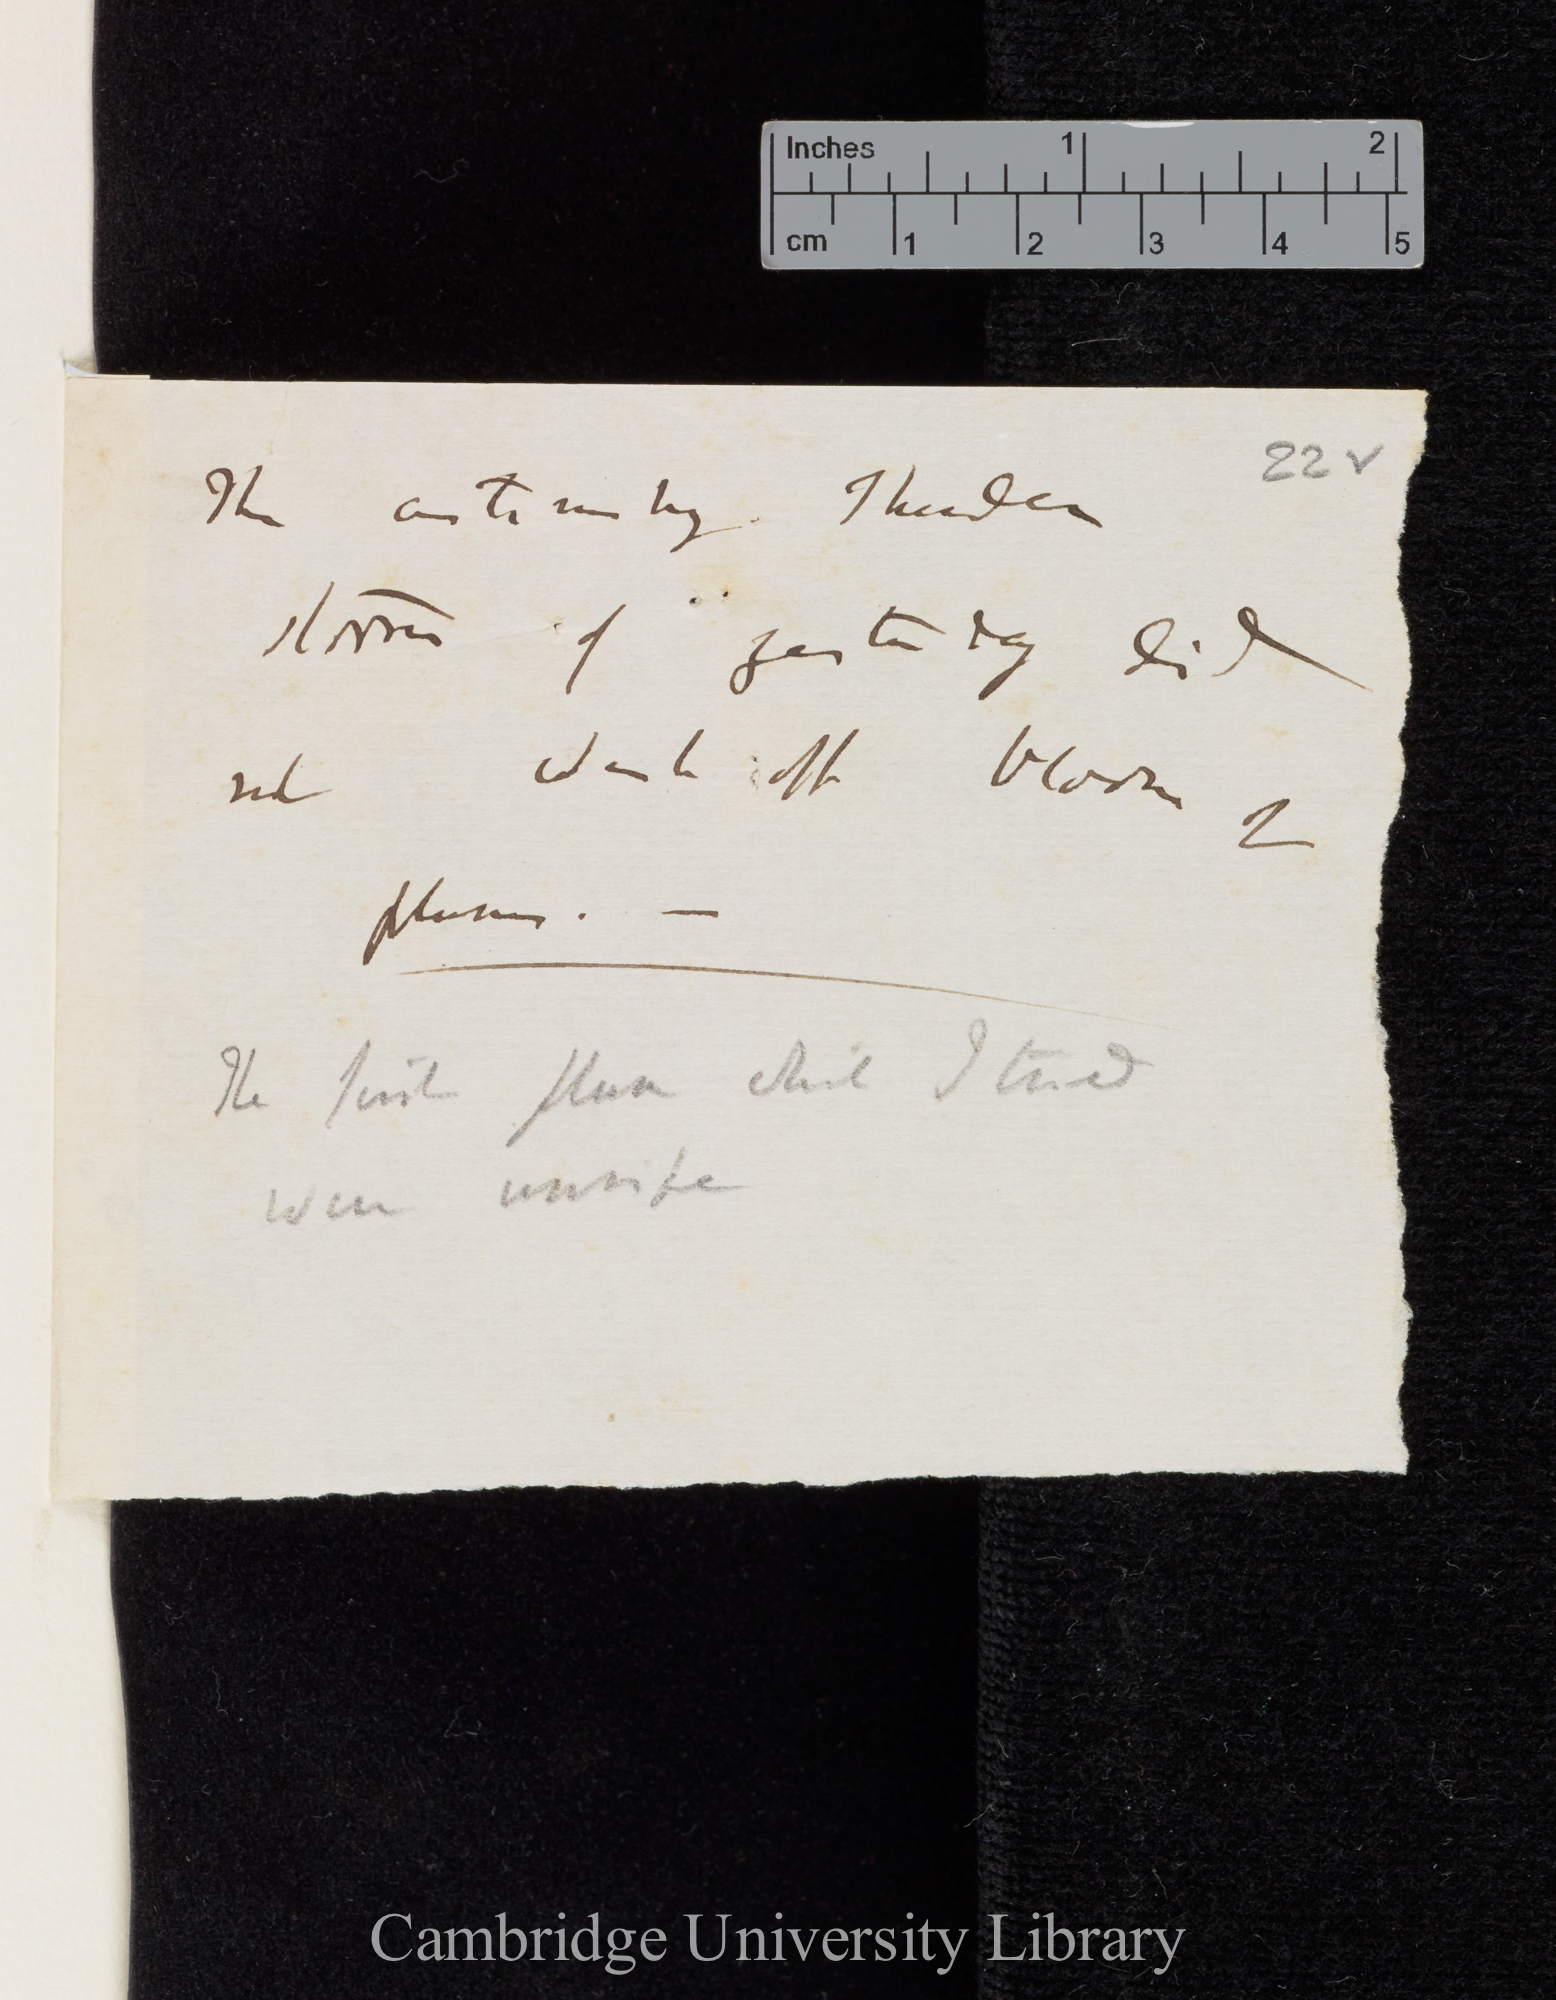 Inches 1 2
cm 1 2 3 4 5
22 v
The astounding Thunder
storm of yesterday did
not wash off bloom of
plums. —
The first plums which I tried
were unripe
Cambridge University Library